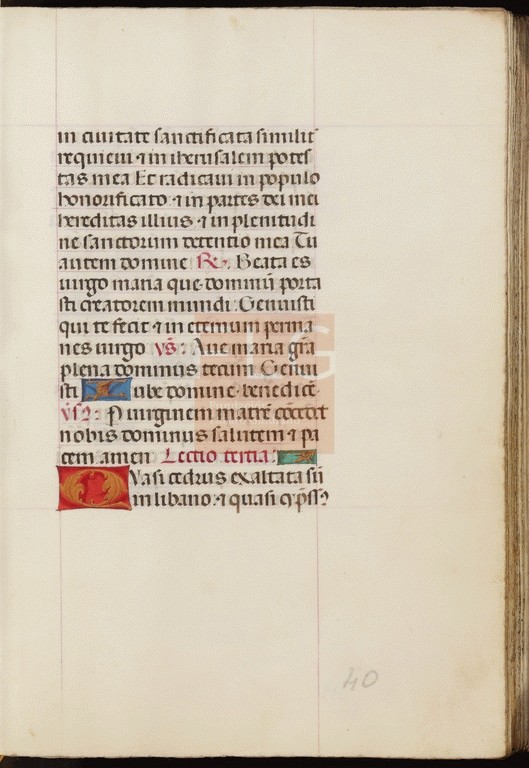 in ciuitate sanctificata similit̄
requieui ⁊ in iherusalem potes
tas mea Et radicaui in populo
honorificato ⁊ in partes dei mei
hereditas illius ⁊ in plenitudi
ne sanctorum detentio mea Tu
autem domine R̃. Beata es
uirgo maria que dominū porta
sti creatorem mundi Genuisti
qui te fecit ⁊ in eternum perma
nes uirgo vs̃: Aue maria gr̄a
plena dominus tecum Genui
sti Iube domine benedicē
vs̃: P uirginem matrē cōcedat
nobis dominus salutem ⁊ pa
cem amen Lectio tertia:
QVasi cedrus exaltata sū
in libano: ⁊ quasi cyp̄ss
40